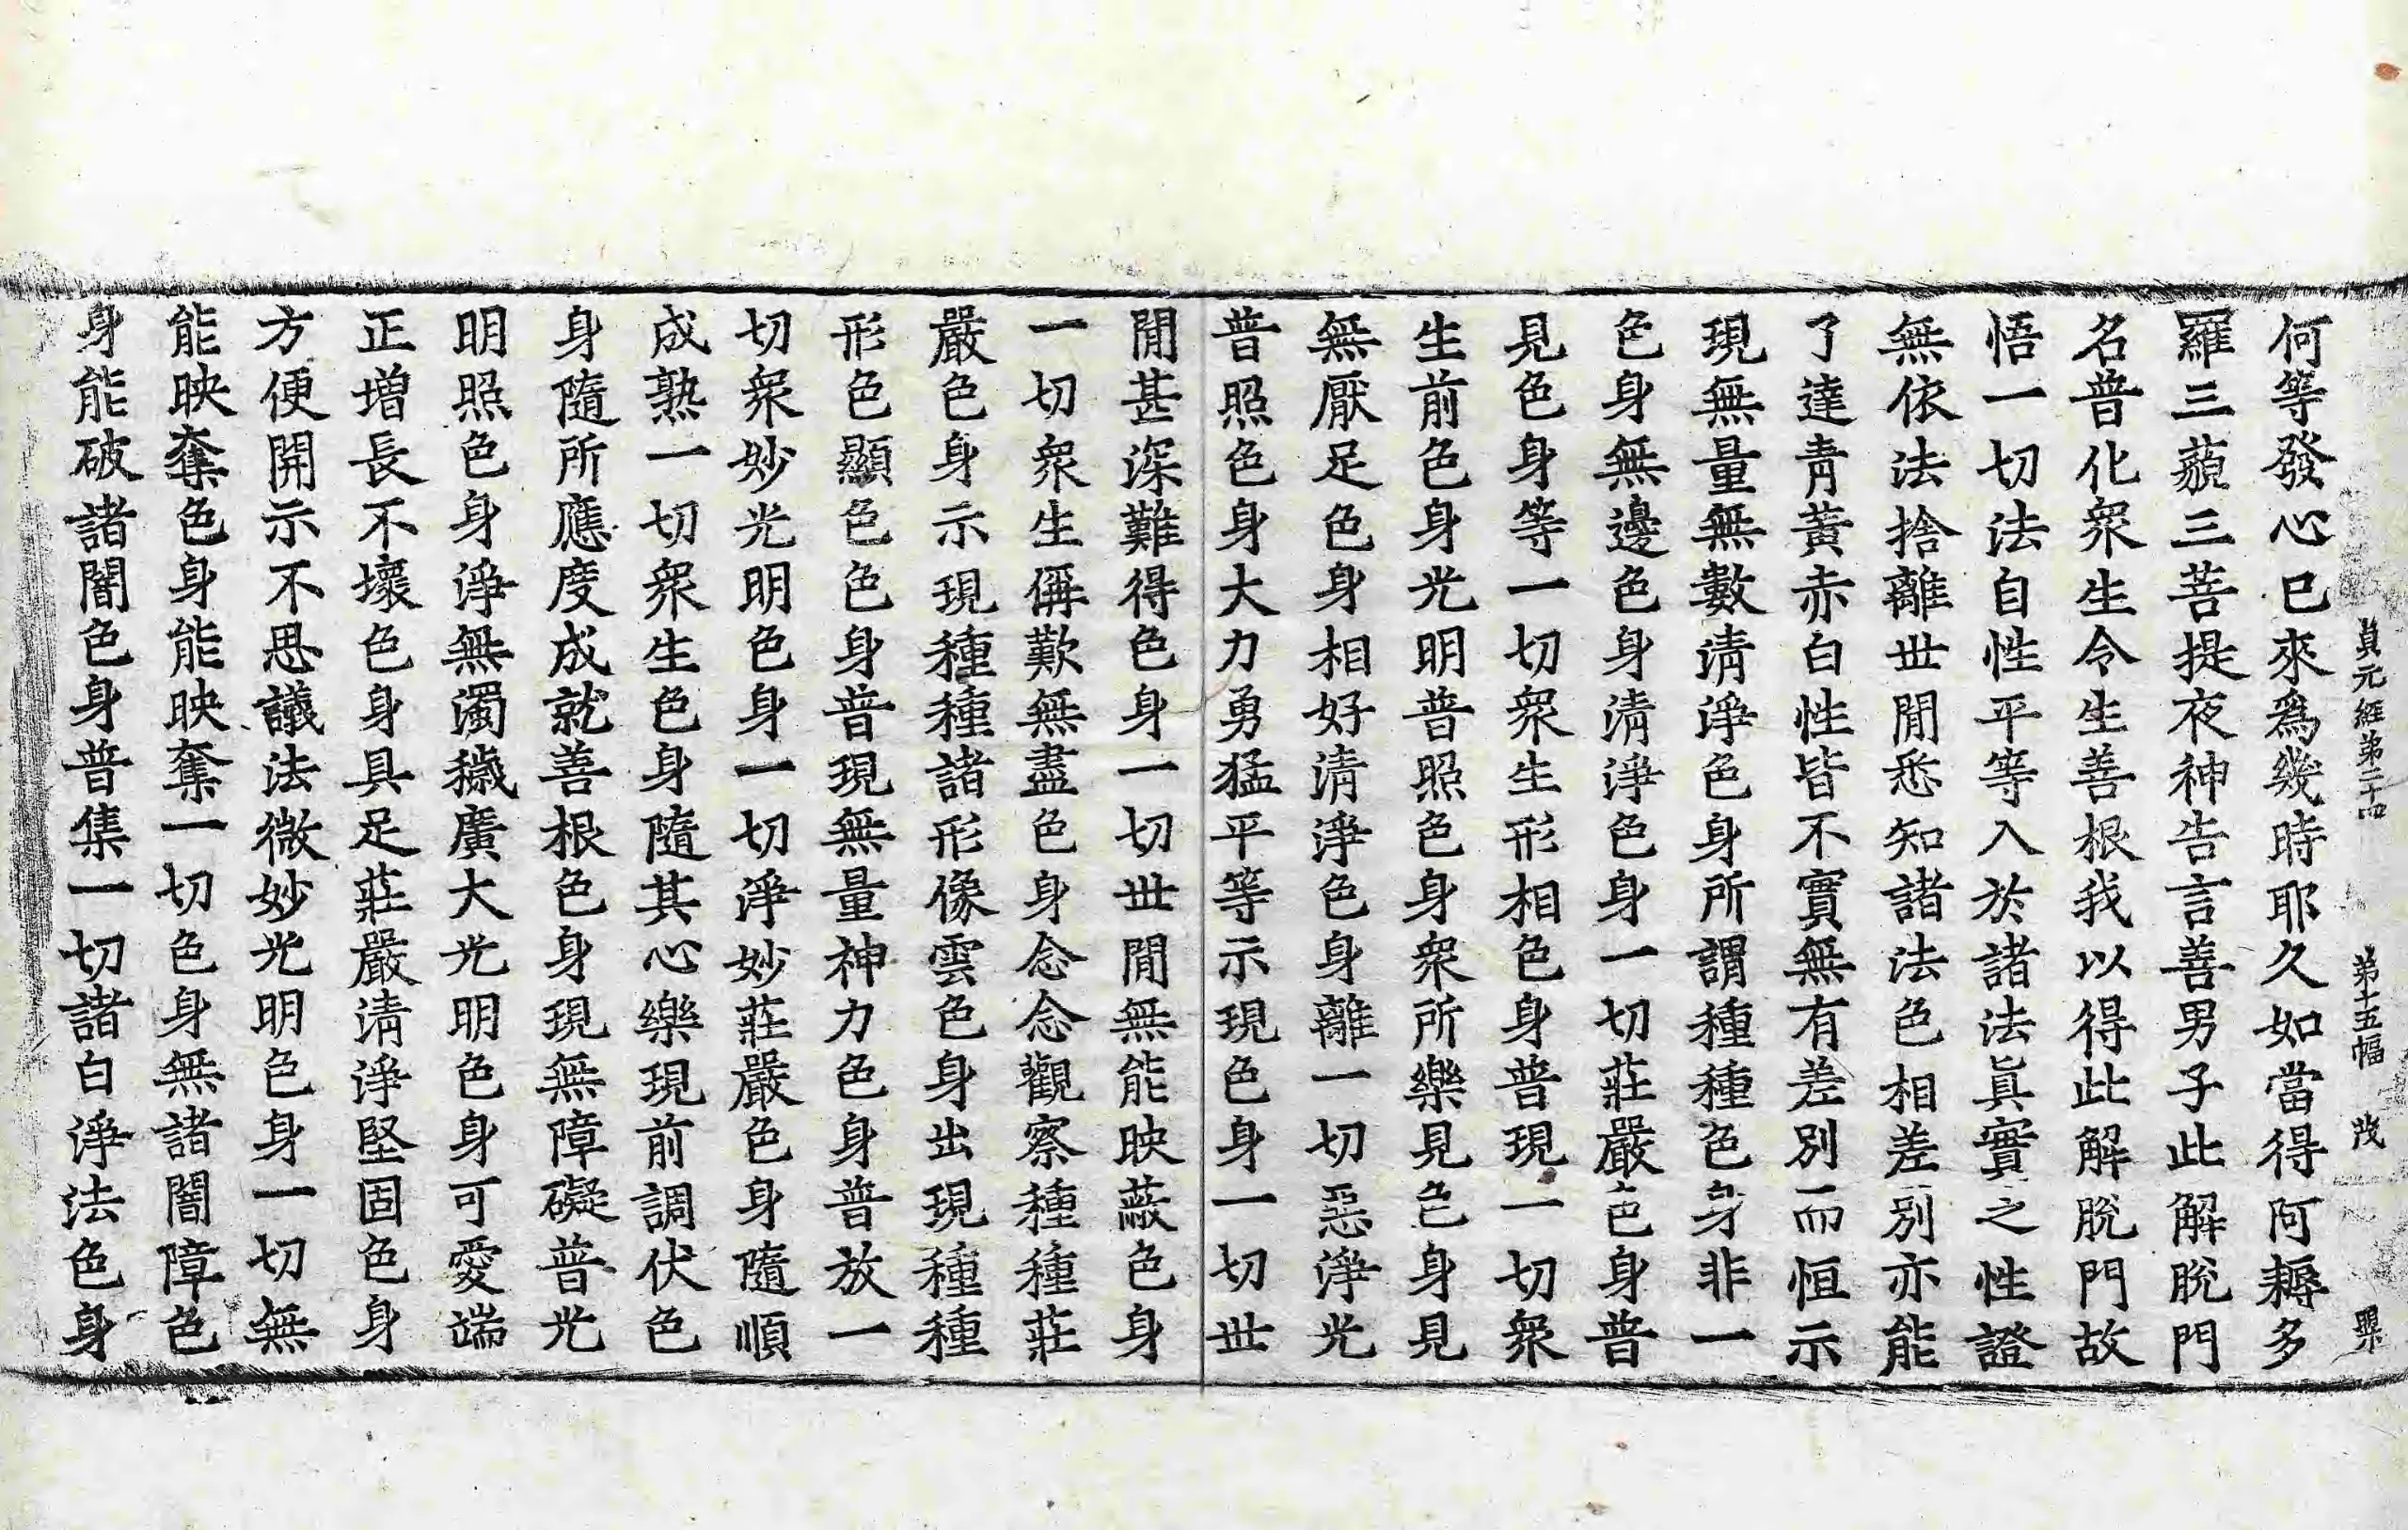 貞元經第二十四 第十五幅 茂
何等發心已來爲幾時耶久如當得阿耨多
羅三藐三菩提夜神告言善男子此解脫門
名普化衆生令生善根我以得此解脫門故
悟一切法自性平等入於諸法眞實之性證
無依法捨離世閒悉知諸法色相差別亦能
了達青黃赤白性皆不實無有差別而恒示
現無量無數淸淨色身所謂種種色身非一
色身無邊色身淸淨色身一切莊嚴色身普
見色身等一切衆生形相色身普現一切衆
生前色身光明普照色身衆所樂見色身見
無厭足色身相好淸淨色身離一切惡淨光
普照色身大力勇猛平等示現色身一切世
閒甚深難得色身一切世閒無能映蔽色身
一切衆生偁歎無盡色身念念觀察種種莊
嚴色身示現種種諸形像雲色身出現種種
形色顯色色身普現無量神力色身普放一
切衆妙光明色身一切淨妙莊嚴色身隨順
成熟一切衆生色身隨其心樂現前調伏色
身隨所應度成就善根色身現無障礙普光
明照色身淨無濁穢廣大光明色身可愛端
正增長不壞色身具足莊嚴淸淨堅固色身
方便開示不思議法微妙光明色身一切無
能映奪色身能映奪一切色身無諸闇障色
身能破諸闇色身普集一切諸白淨法色身